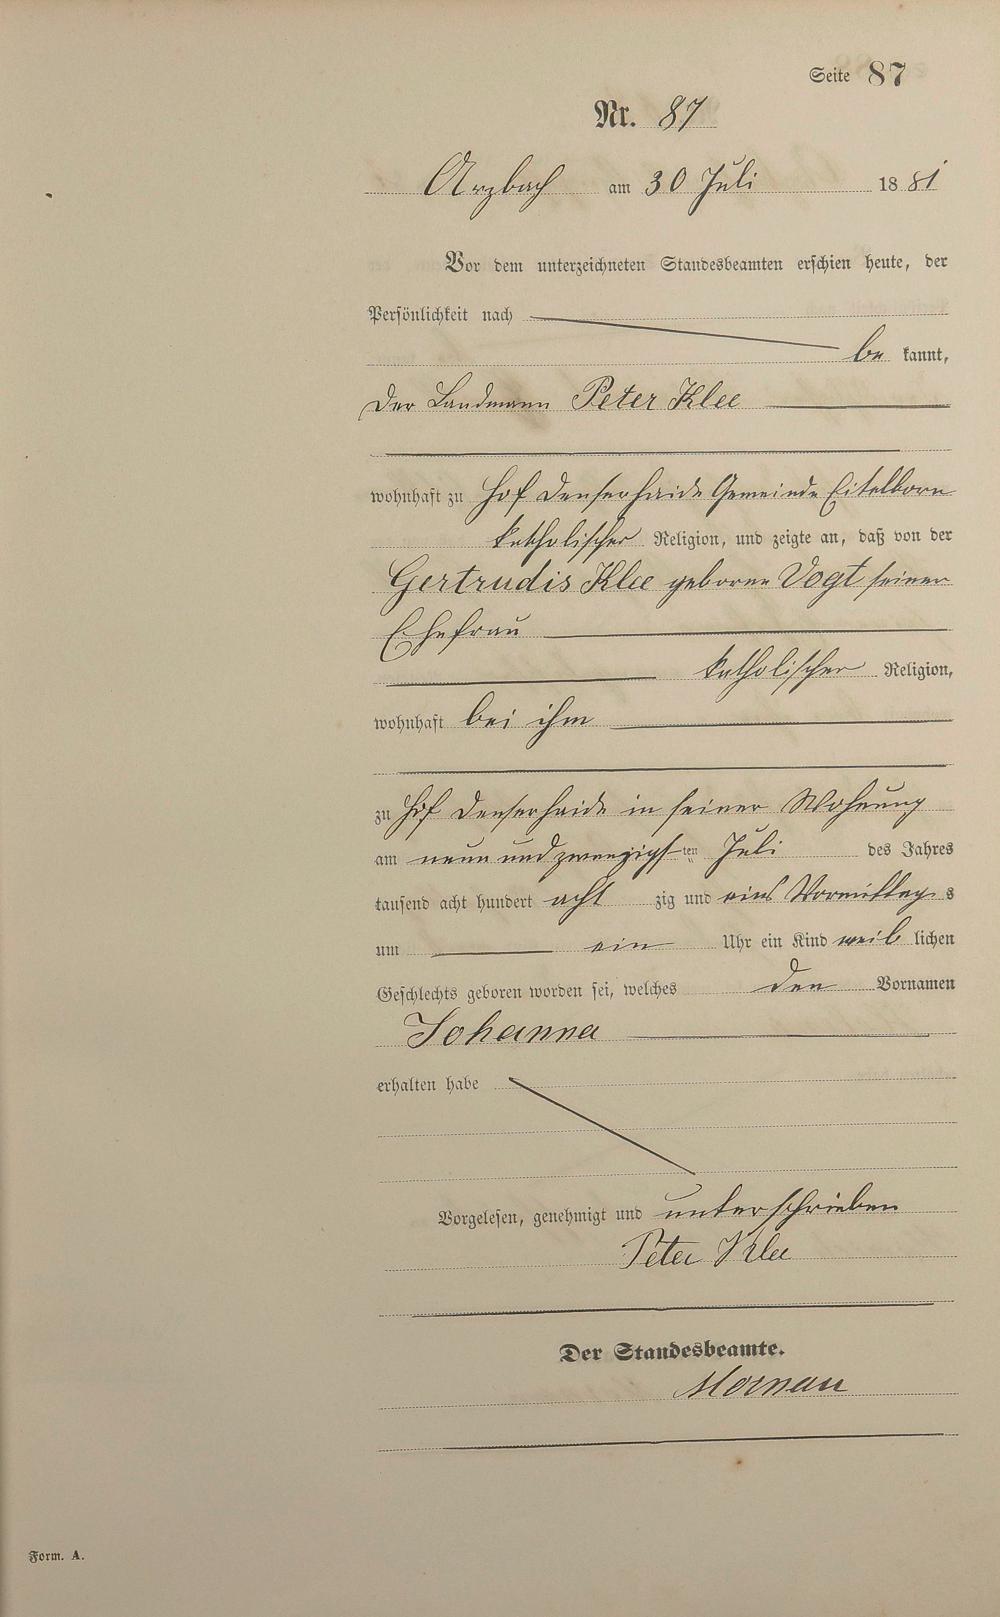 Seite 87
Nr. 87
Arzbach am 30 Juli 1881
Vor dem unterzeichneten Standesbeamten erschien heute, der
Persönlichkeit nach
be kannt,
der Landmann Peter Klee
wohnhaft zu Hof Denserhaide Gemeinde Eitelborn
katholischer Religion, und zeigte an, daß von der
Gertrudis Klee geborne Vogt seiner
Ehefrau
katholischer Religion,
wohnhaft bei ihm
zu Hof Denserhaide in seiner Wohnung
am neun und zwanzigsten Juli des Jahres
tausend acht hundert achtzig und eins Vormittags
um ein Uhr ein Kind weiblichen
Geschlechts geboren worden sei, welches den Vornamen
Johanna
erhalten habe
Vorgelesen, genehmigt und unterschrieben
Peter Klee
Der Standesbeamte.
Form. A.